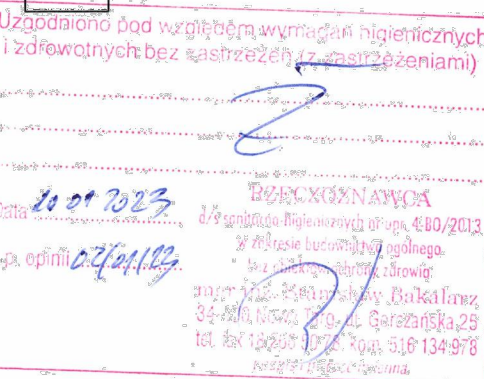 Uzgodniono pod względem wymagań higienicznych
i zdrowotnych bez zastrzeżeń (z zastrzeżeniami)
Data 20 01 2023
p. opinii 02/01/23
RZECZOZNAWCA
d/s sanitarno-higienicznych nr upr. 4-BO/2013
w zakresie budownictwa ogólnego
bez obiektów ochrony zdrowia
Bakalarz
34-400 Nowy Targ, ul. Gorczańska 25
kom. 516 134 978